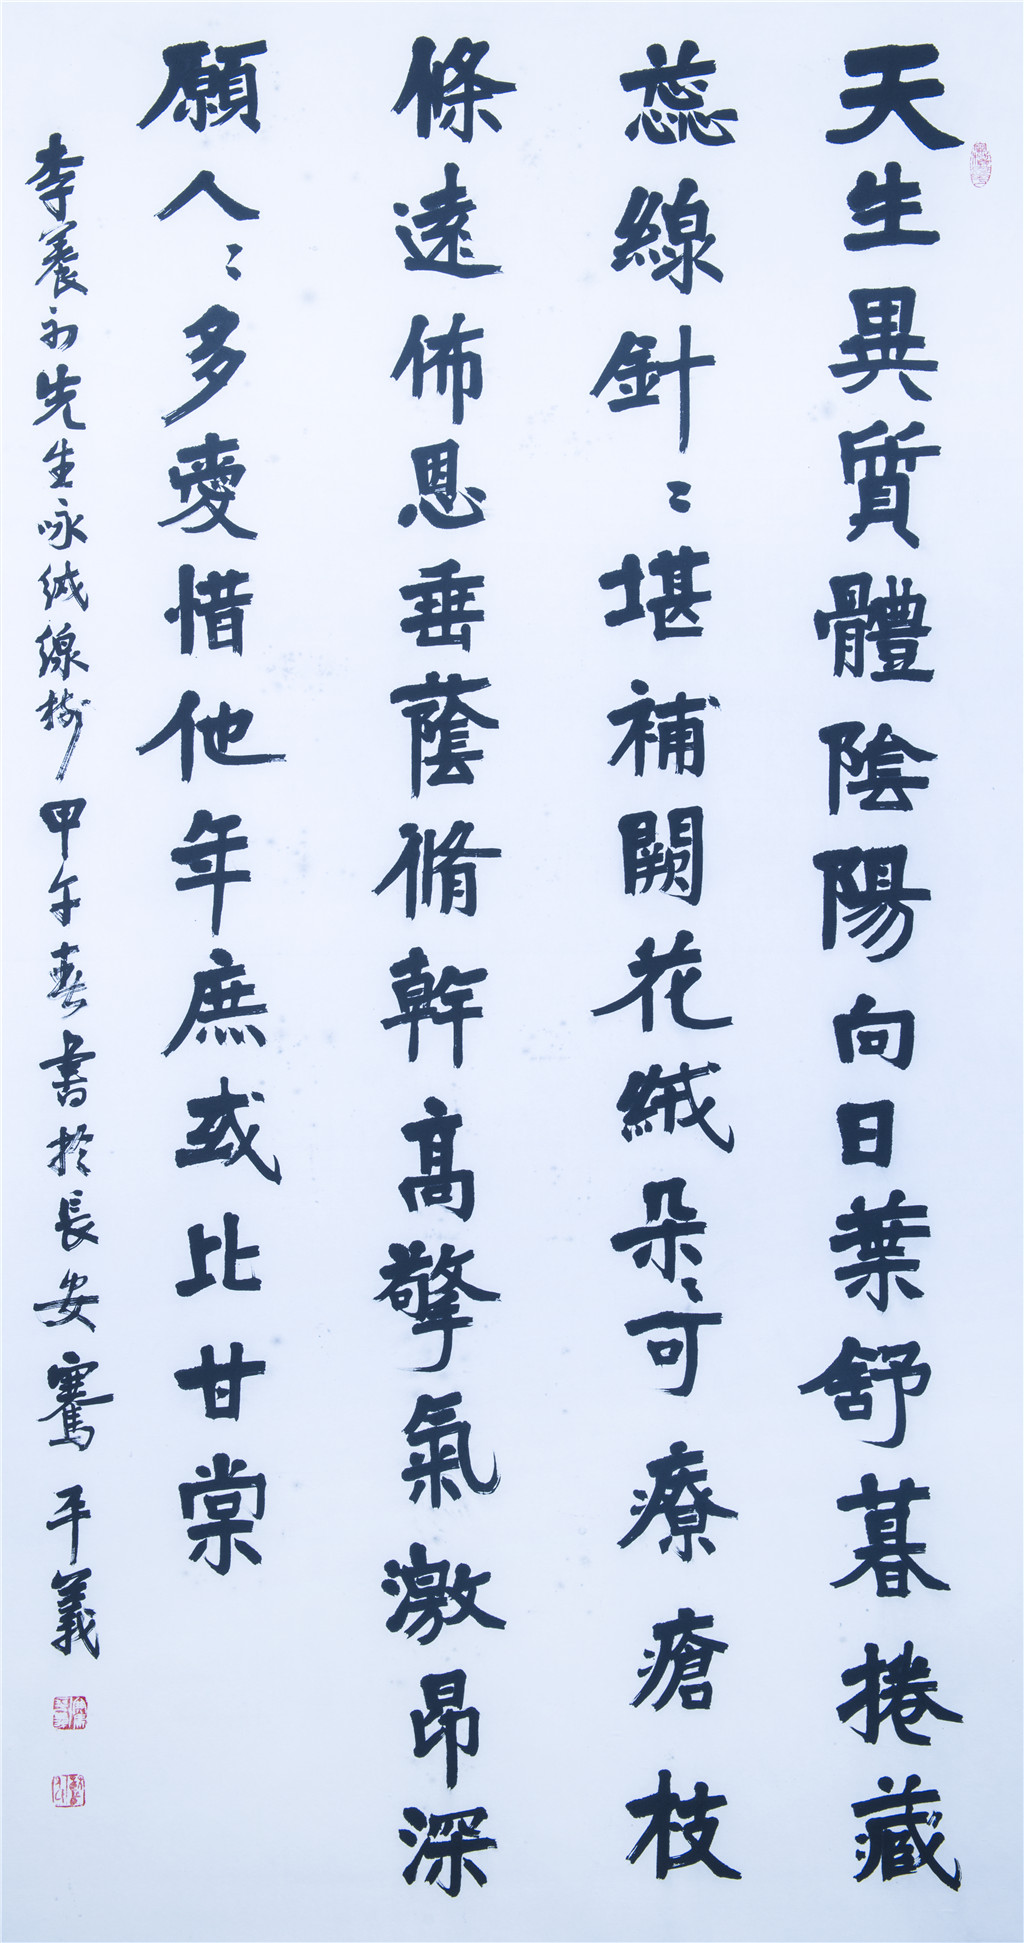 天生異質體陰陽向日葉舒暮捲藏
蕊線針〻堪補闕花絨朵〻可療瘡枝
條遠佈恩垂蔭脩幹高擎氣激昂深
願人〻多愛惜他年庶或比甘棠
李養初先生咏絨線樹甲午春書於長安騫平義